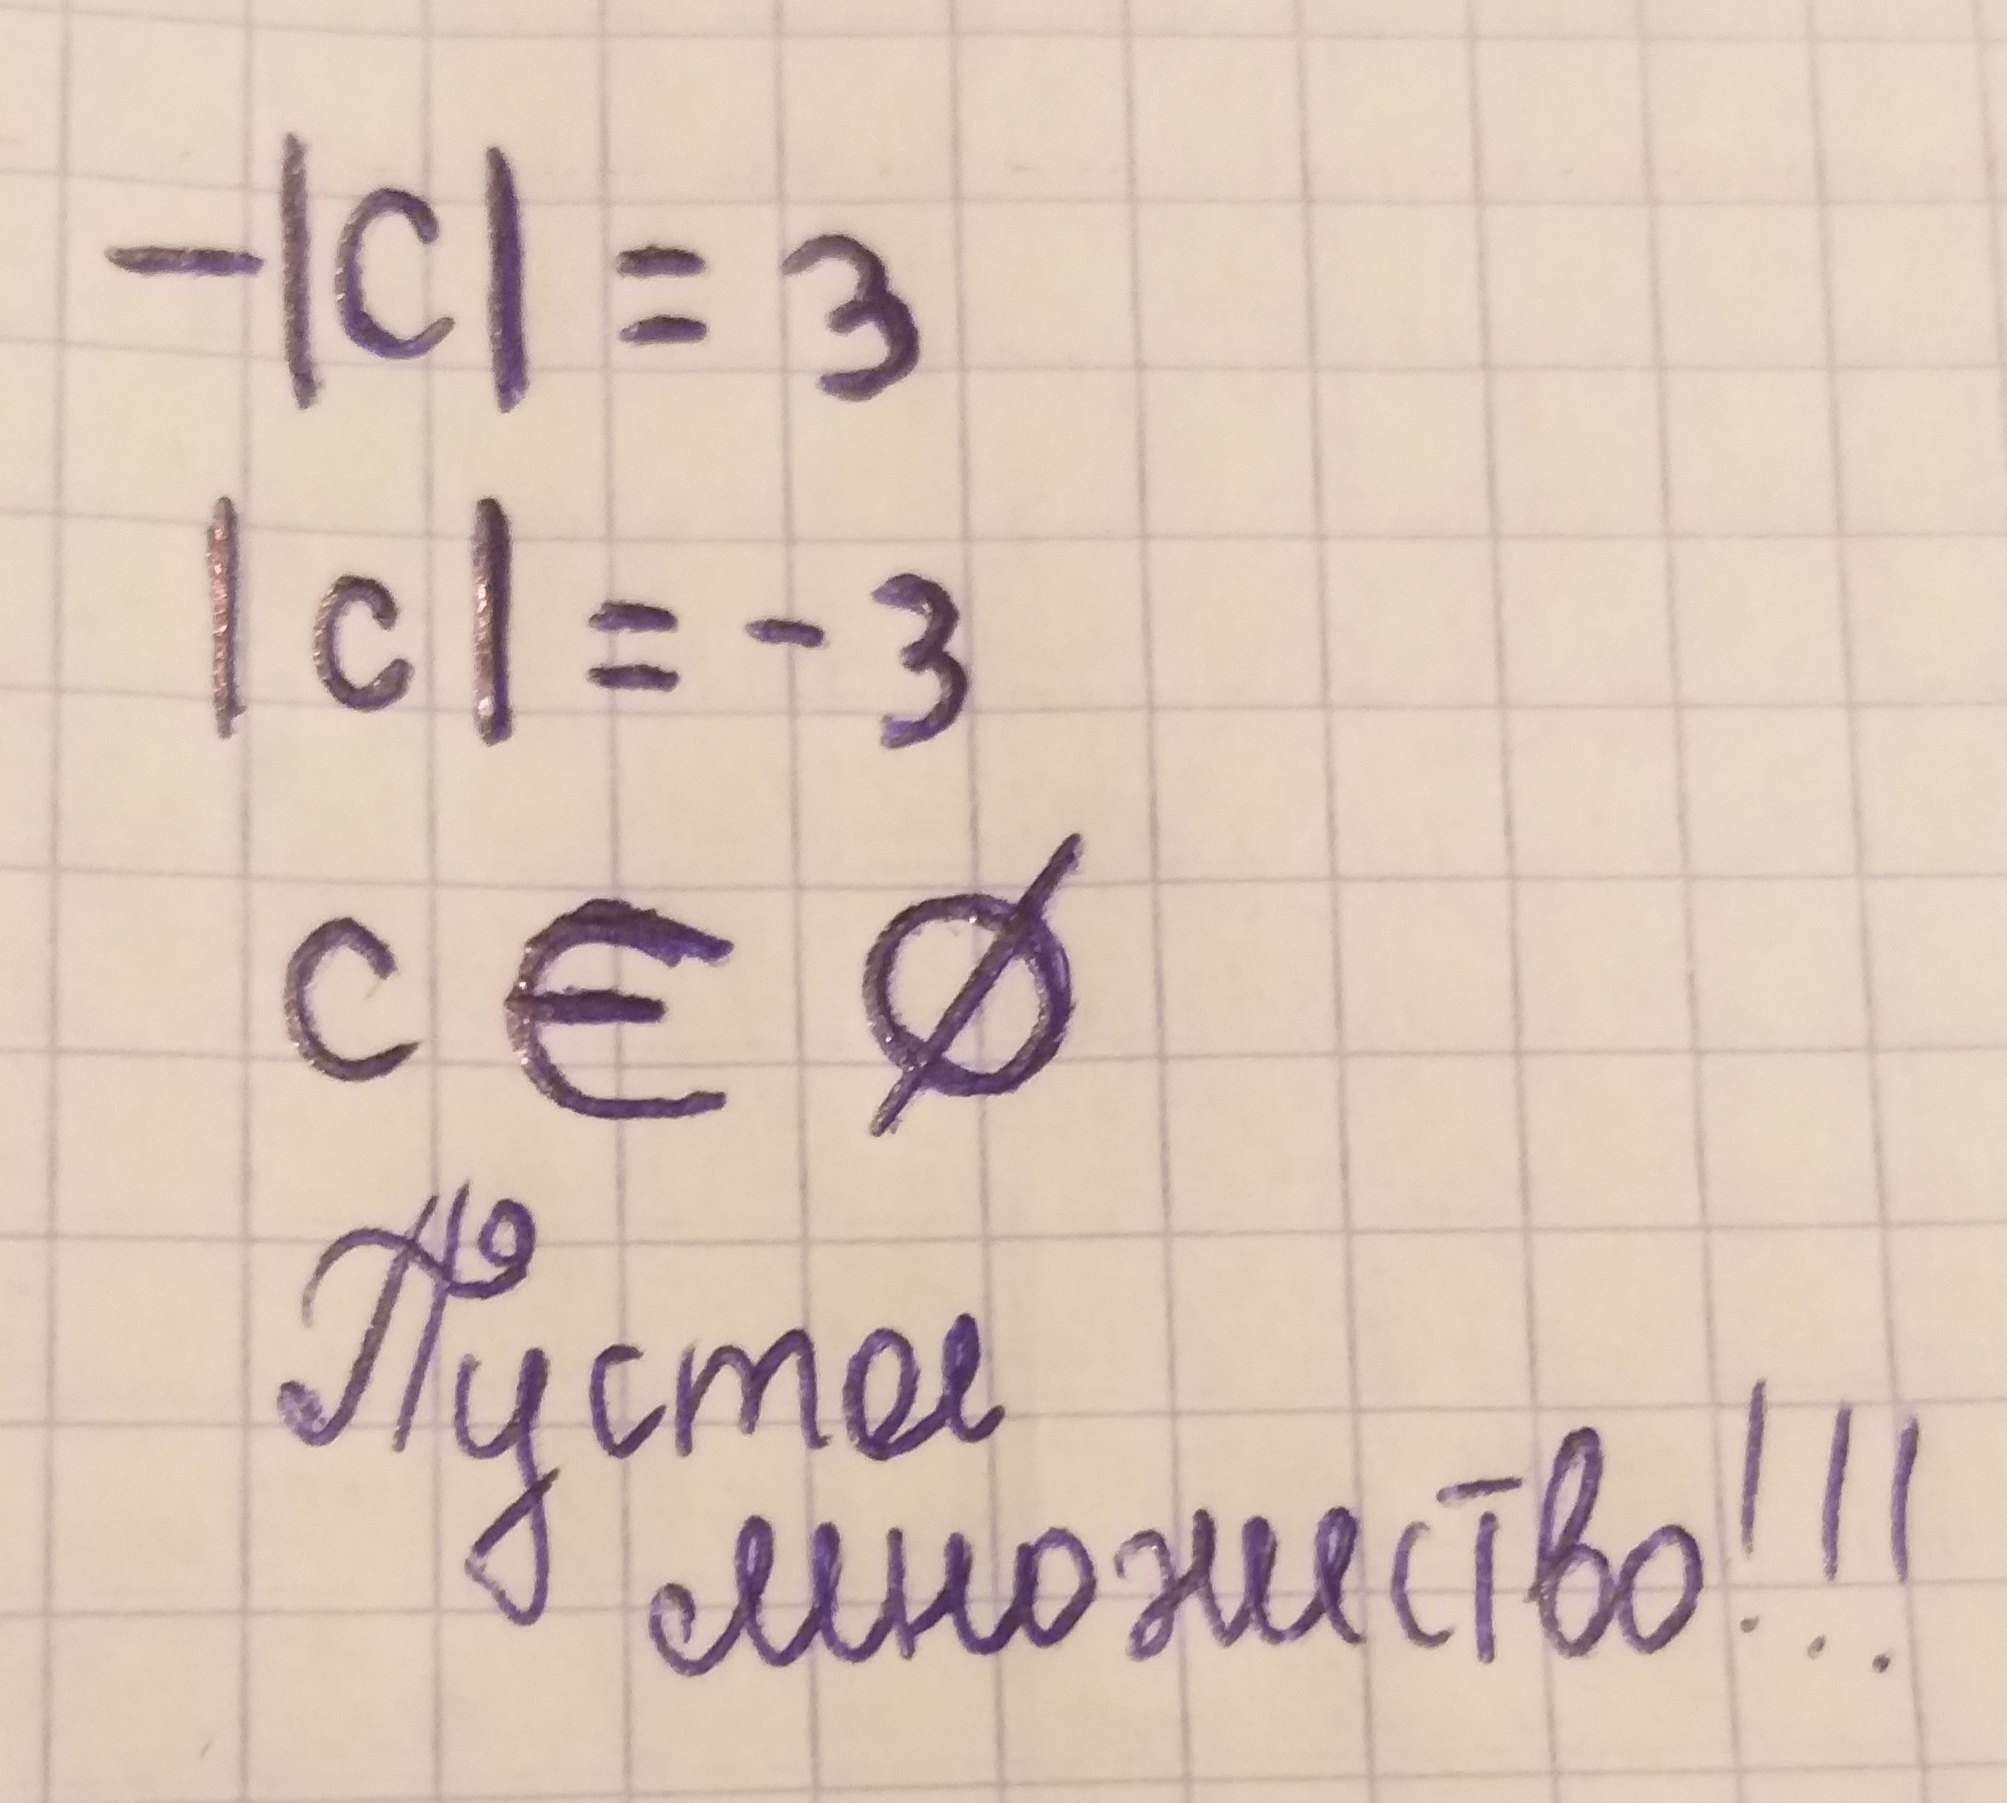 -|c| = 3
|c| = -3
c ∈ ∅
Пустое
множество!!!